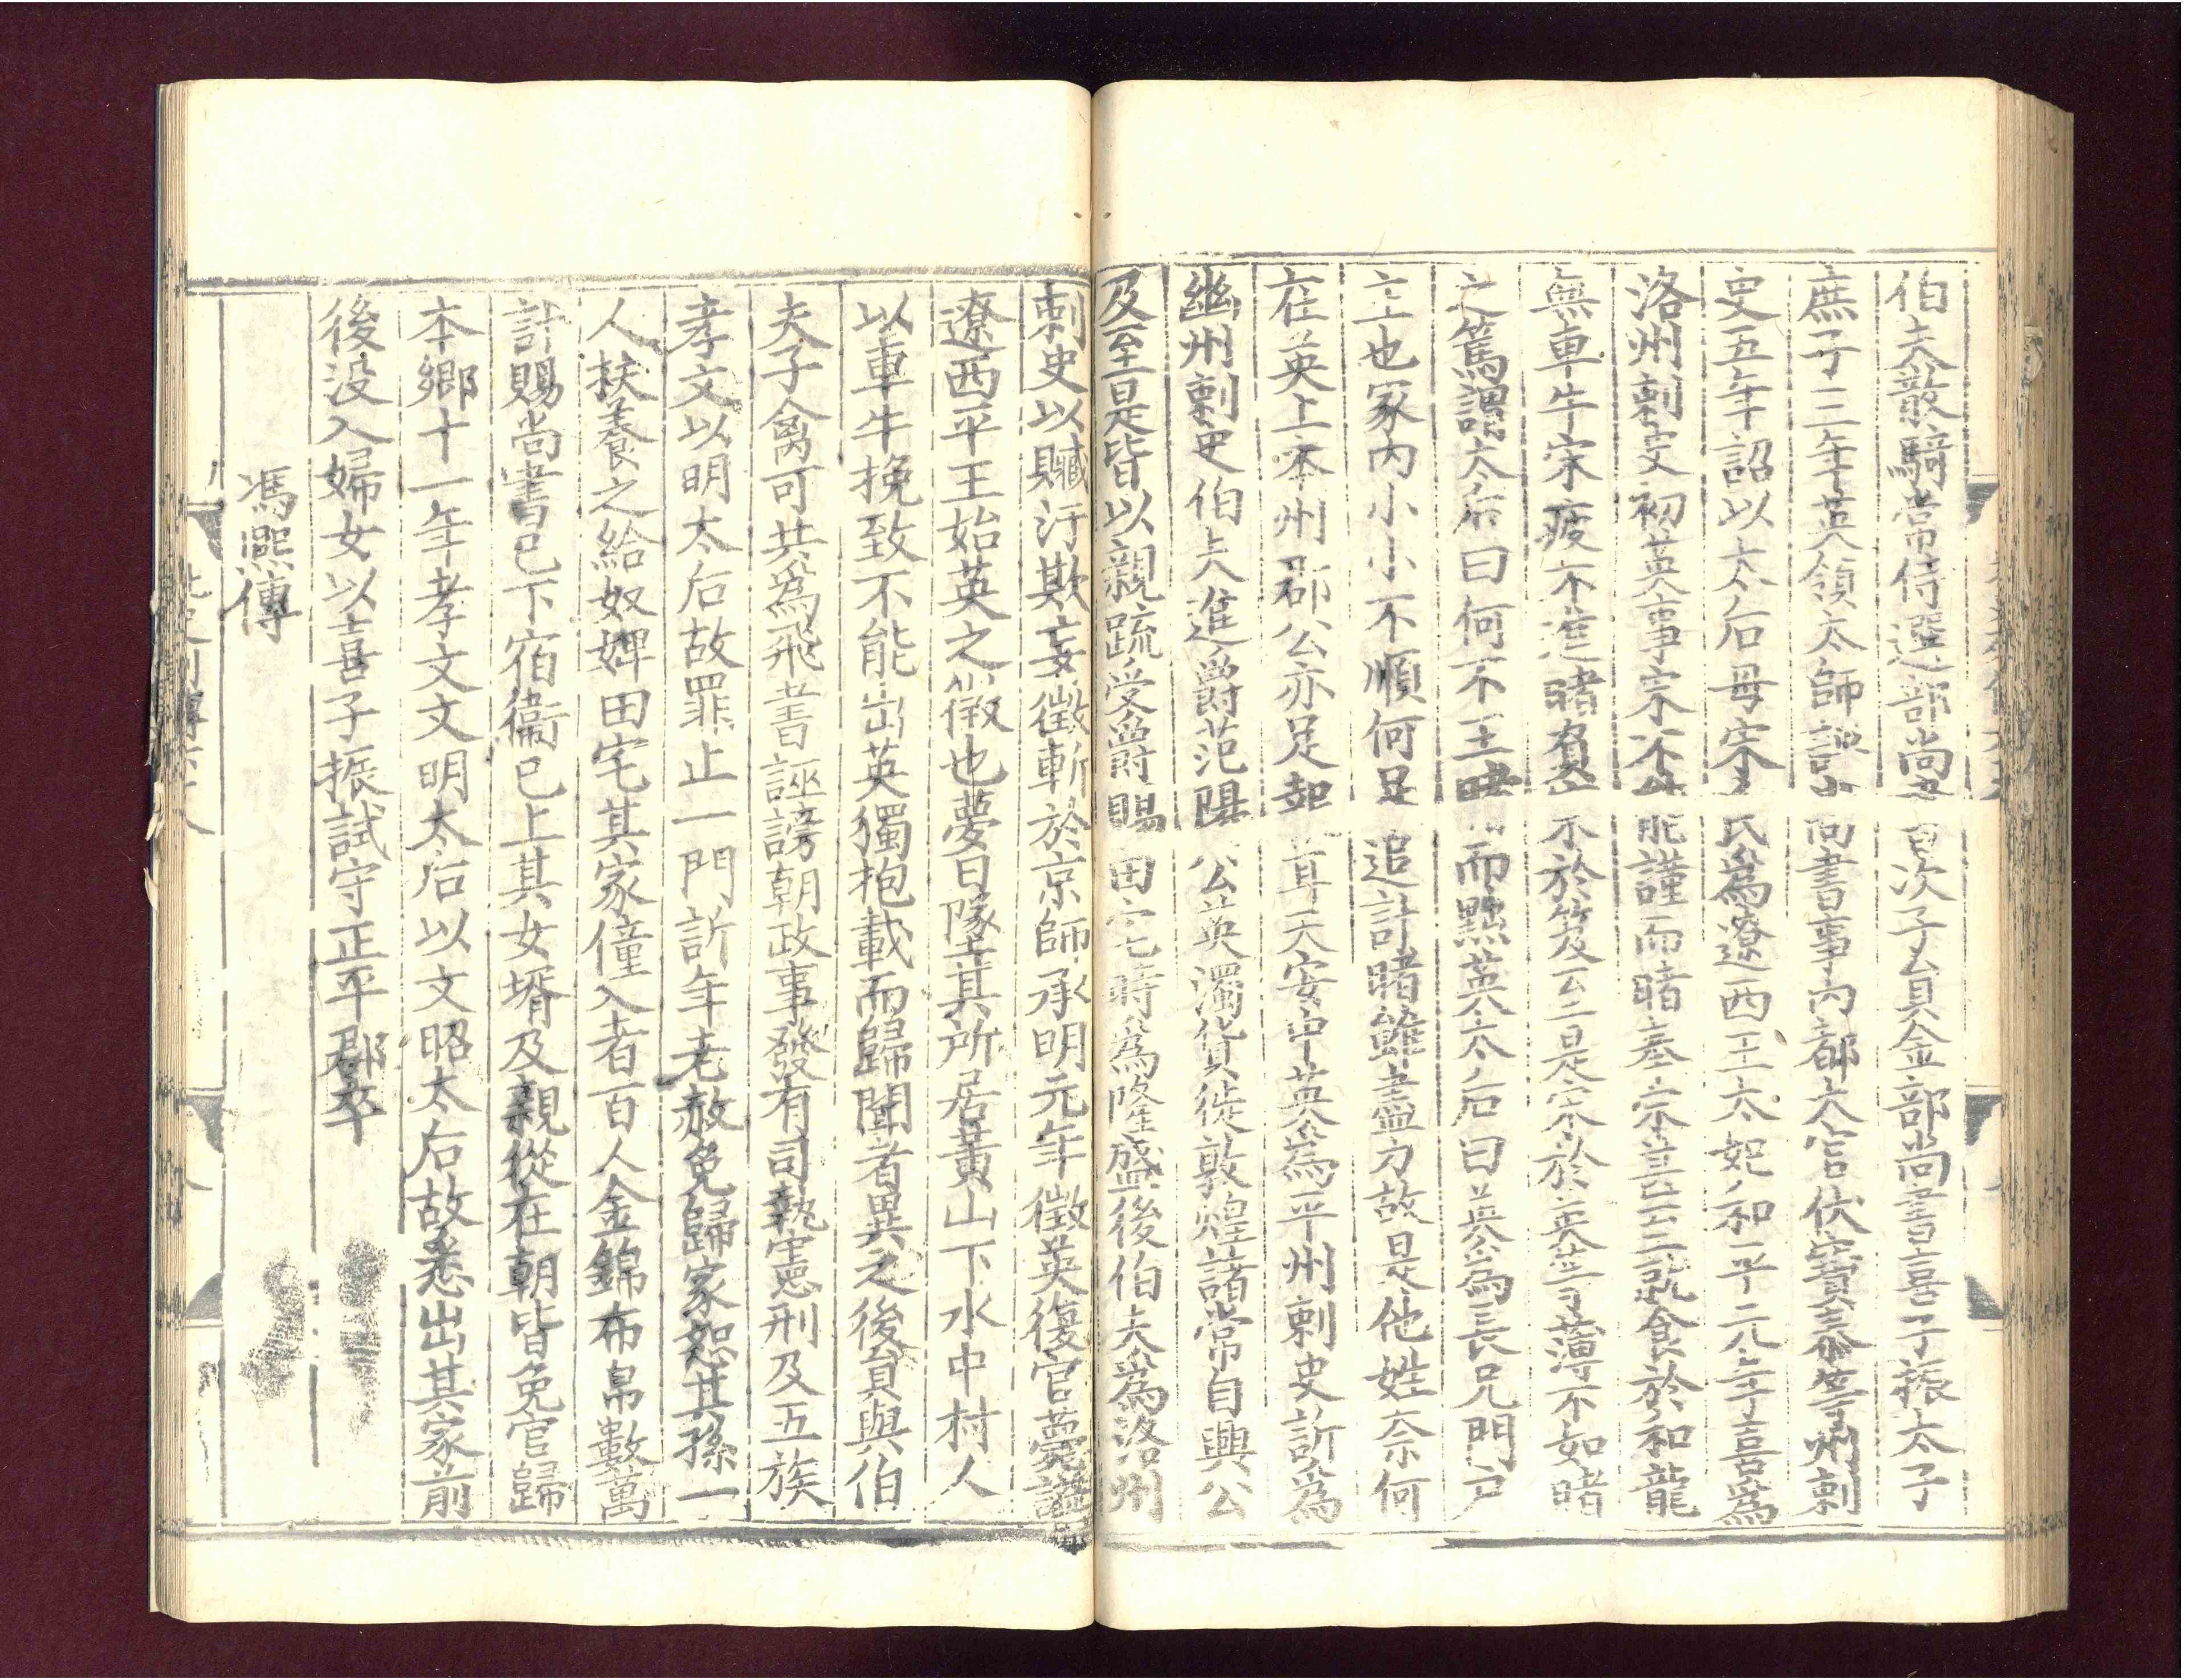 伯夫散騎常侍選部尚書次子員金部尚書喜子振太子
庶子三年英領太師評尚書事內都大官伏寶泰等州刺
史五年詔以太后母宋氏為遼西王太妃和平元年喜為
洛州刺史初英事宋不能謹而睹奉宋甚至就食於和龍
無車牛宋疲不進睹負宋於笈至是宋於英等薄不如睹
之篤謂太后曰何不王睹而黜英太后曰英為長兄門戶
主也家內小小不順何足追計睹雖盡力故是他姓奈何
在英上本州郡公亦足報耳天安中英為平州刺史訢為
幽州刺史伯夫進爵范陽公英濁貨徙敦煌諸常自興公
及至是皆以親疏受爵賜田宅時為隆盛後伯夫為洛州
刺史以贓汙欺妄徵斬於京師承明元年徵英復官薨謚
遼西平王始英之徵也夢日墜其所居黃山下水中村人
以車牛挽致不能出英獨抱載而歸聞者異之後員與伯
夫子禽可共為飛書誣謗朝政事發有司執憲刑及五族
孝文以明太后故罪止一門訢年老赦免歸家恕其孫一
人扶養之給奴婢田宅其家僮入者百人金錦布帛數萬
計賜尚書已下宿衛已上其女壻及親從在朝皆免官歸
本鄉十一年孝文文明太后以文昭太后故悉出其家前
後没入婦女以喜子振試守正平郡卒
馮熙傳